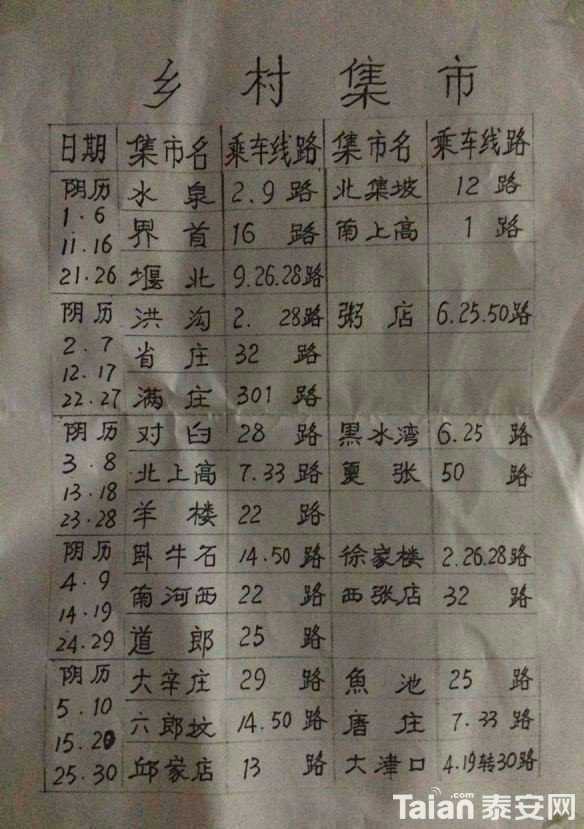 乡村集市
日期 集市名 乘车线路 集市名 乘车线路
阴历 水泉 2.9路 北集坡 12路
1.6
11.16 界首 16路 南上高 1路
21.26 堰北 9.26.28路
阴历 洪沟 2.28路 粥店 6.25.50路
2.7
12.17 省庄 32路
22.27 满庄 301路
阴历 对臼 28路 黑水湾 6.25路
3.8
13.18 北上高 7.33路 夏张 50路
23.28 羊楼 22路
阴历 卧牛石 14.50路 徐家楼 2.26.28路
4.9
14.19 南河西 22路 西张店 32路
24.29 道郎 25路
阴历 大辛庄 29路 魚池 25路
5.10
15.20 六郎坟 14.50路 唐庄 7.33路
25.30 邱家店 13路 大津口 4.19转30路
Taian泰安网
.com